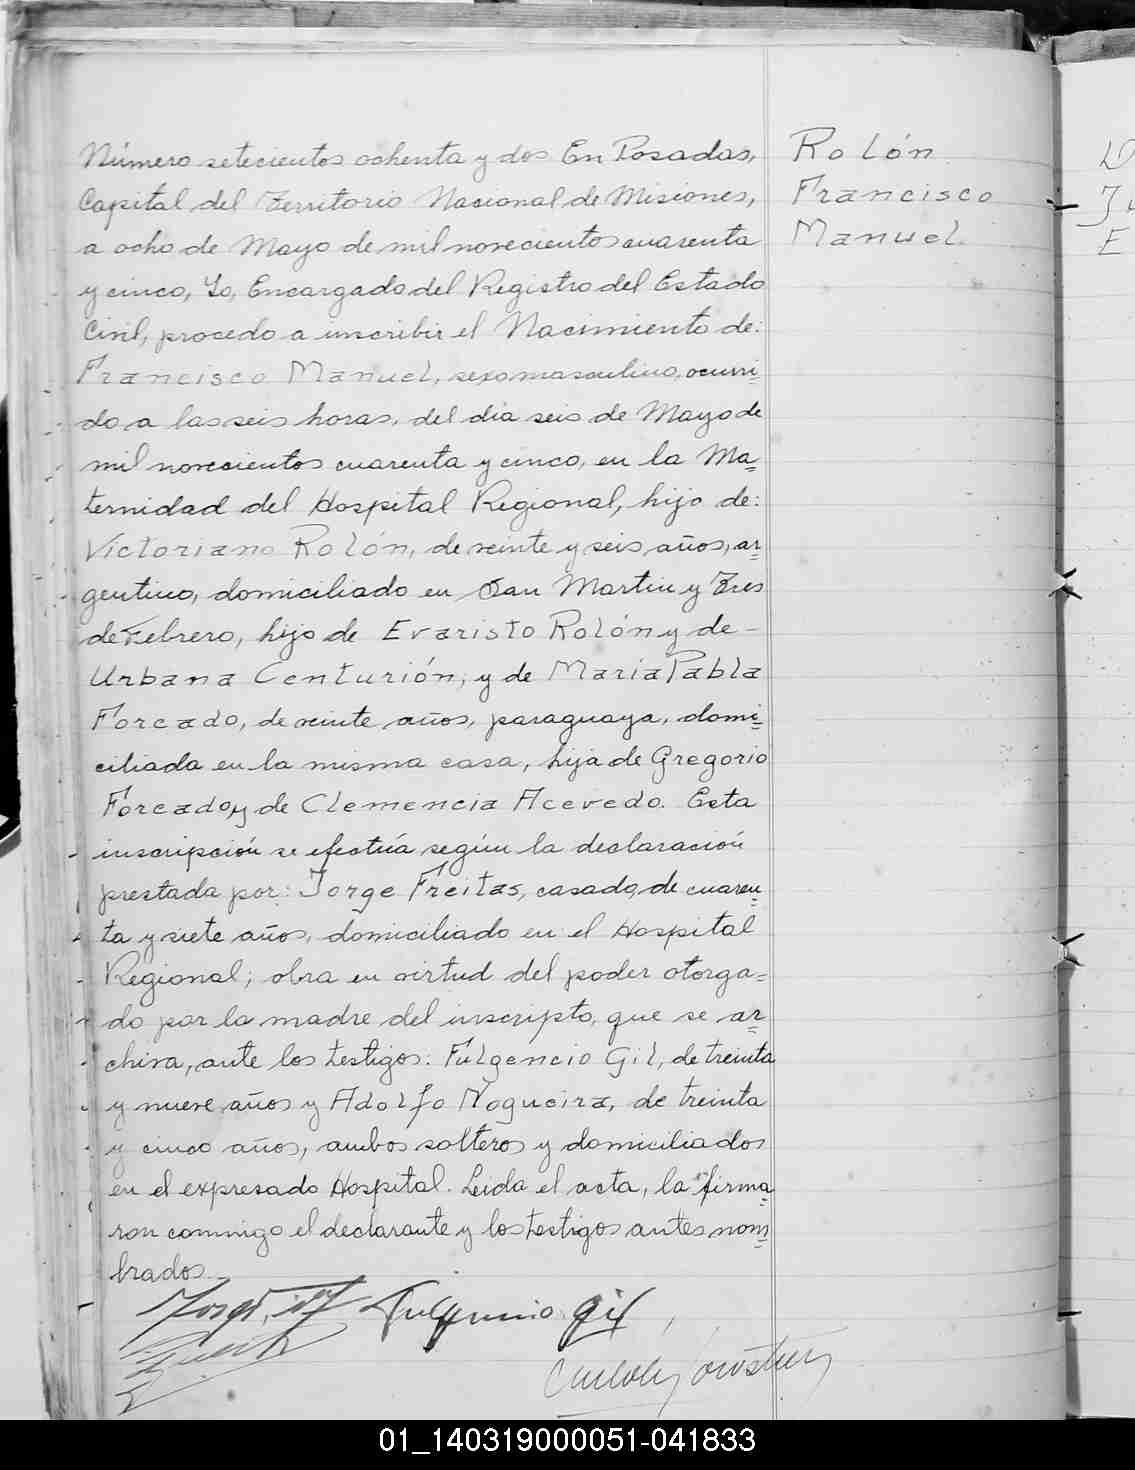 Número setecientos ochenta y dos En Posadas,
Capital del Territorio Nacional de Misiones,
a ocho de Mayo de mil novecientos cuarenta
y cinco, Yo, Encargado del Registro del Estado
Civil, procedo a inscribir el Nacimiento de:
Francisco Manuel, sexo masculino, ocurri-
do a las seis horas, del día seis de Mayo de
mil novecientos cuarenta y cinco, en la Ma=
ternidad del Hospital Regional, hijo de:
Victoriano Rolón, de veinte y seis años, ar=
gentino, domiciliado en San Martin y Tres
de Febrero, hijo de Evaristo Rolón y de -
Urbana Centurión; y de María Pabla
Forcado, de veinte años, paraguaya, domi=
ciliada en la misma casa, hija de Gregorio
Forcado y de Clemencia Acevedo. Esta
inscripción se efectúa según la declaración
prestada por: Jorge Freitas, casado, de cuaren=
ta y siete años, domiciliado en el Hospital
Regional; obra en virtud del poder otorga=
do por la madre del inscripto, que se ar=
chiva, ante los testigos: Fulgencio Gil, de treinta
y nueve años y Adolfo Nogueira, de treinta
y cinco años, ambos solteros y domiciliados
en el expresado Hospital. Leida el acta, la firma=
ron conmigo el declarante y los testigos antes nom=
brados.
Fulgencio Gil
Rolón
Francisco
Manuel.
01_140319000051-041833